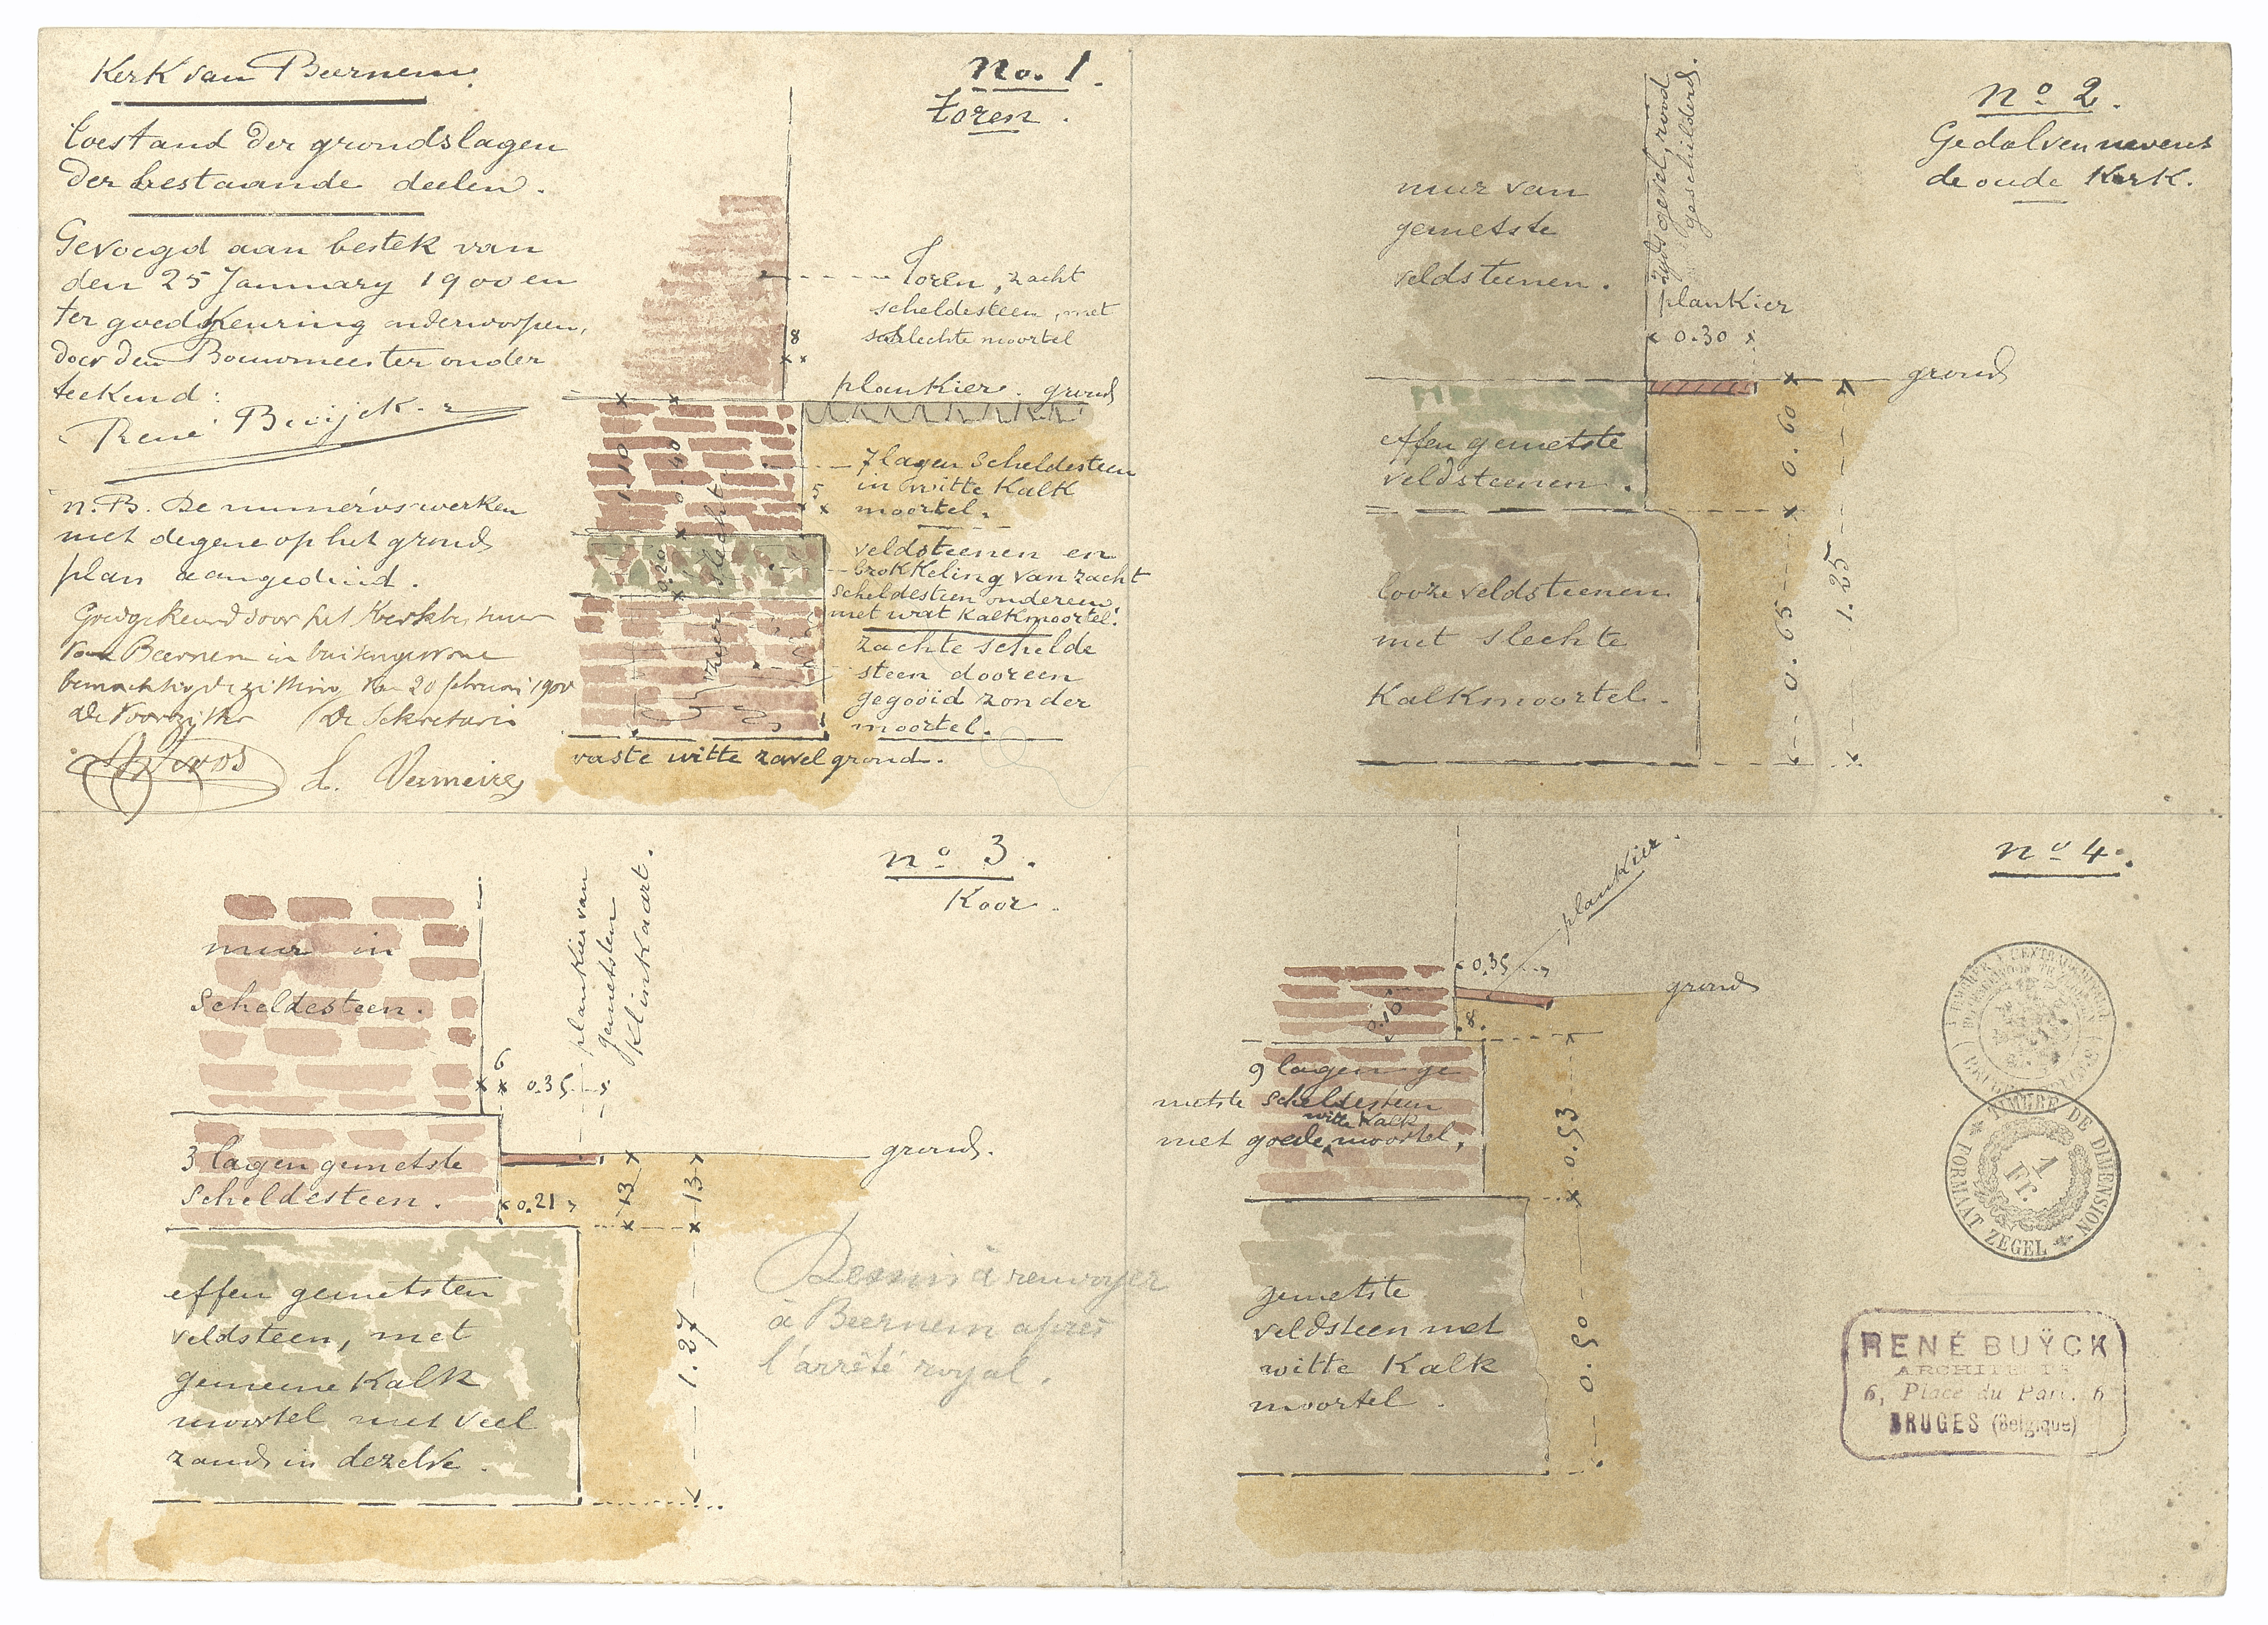 Kerk van Beernem.
Toestand der grondslagen
der bestaande deelen.
Gevoegd aan bestek van
den 25 January 1900 en
ter goedkeuring onderworpen,
door den Bouwmeester onder
teekend:
René Buÿck
N.B. De numéros werken
met degene op het grond
plan aangeduid.
Goedgekeurd door het Kerkbestuur
van Beernem in buitengewone
zitting van 20 februari 1900
De Voorzitter De Sekretaris
L. Vermeire
No. 1.
Toren.
Toren, zacht
scheldesteen, met
slechte moortel
8
plankier. grond
1.10
0.40
7 lagen scheldesteen
in witte Kalk
moortel.
5
0.20
slecht
veldsteenen en
brokkeling van zacht
scheldesteen ondereen,
met wat Kalkmoortel.
zachte schelde
steen dooreen
gegooid zonder
moortel.
vaste witte zavel grond.
no 2.
Gedolven nevens
de oude Kerk.
muur van
gemetste
veldsteenen.
zydsgevel, rood
geschilderd.
plankier
0.30
grond
effen gemetste
veldsteenen.
0.60
1.25
looze veldsteenen
met slechte
Kalkmoortel.
0.65
no 3.
Koor.
muur in
scheldesteen.
plankier van
gemetsten
Klinkaart.
6
0.35
3 lagen gemetste
scheldesteen.
grond.
0.21
13
13
effen gemetsten
veldsteen, met
gemeene Kalk
moortel met veel
zand in dezelve.
1.27
Dessin à renvoyer
à Beernem après
l'arrêté royal.
no 4.
plankier.
0.35
grond
0.10
8.
9 lagen ge
metste scheldesteen
witte Kalk
met goede moortel,
0.53
gemetste
veldsteen met
witte Kalk
moortel.
0.50
TIMBRE DE DIMENSION
1
Fr.
FORMAAT ZEGEL
RENÉ BUŸCK
ARCHITECTE
6, Place du Parc. 6
BRUGES (Belgique)